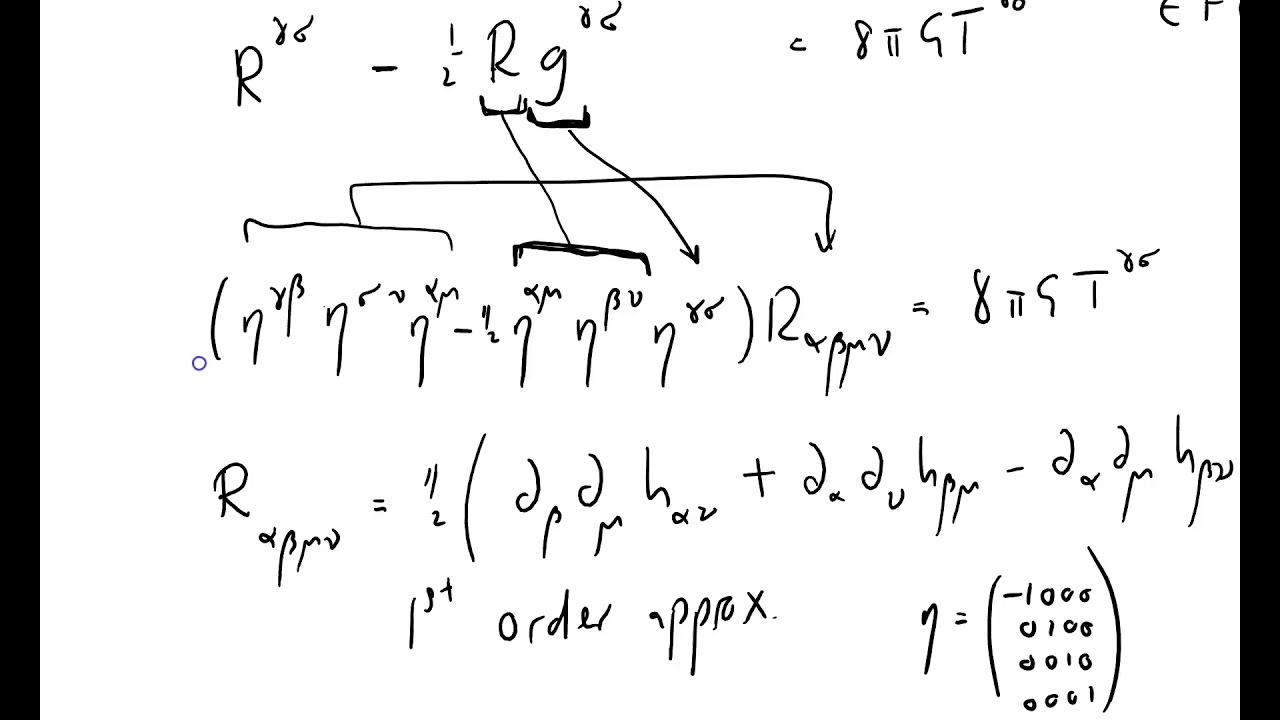 R^{γσ} − ½ R g^{γσ} = 8πG T^{γσ} EF
(η^{γβ} η^{σν} η^{αμ} − ½ η^{αμ} η^{βν} η^{γσ}) R_{αβμν} = 8πG T^{γσ}
R_{αβμν} = ½ ( ∂_β ∂_μ h_{αν} + ∂_α ∂_ν h_{βμ} − ∂_α ∂_μ h_{βν}
1st order approx.
η = (−1 0 0 0
0 1 0 0
0 0 1 0
0 0 0 1)